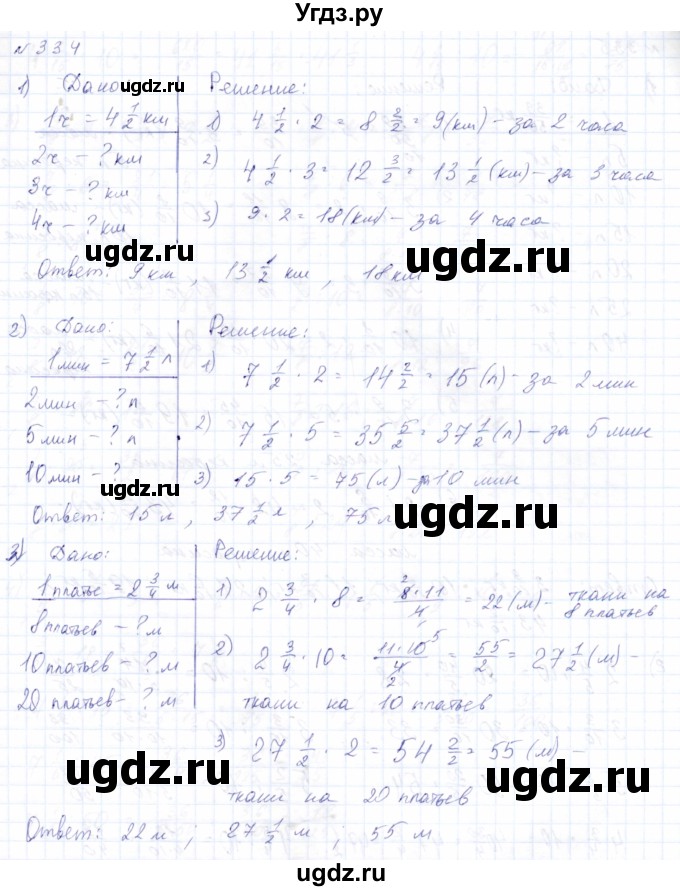 Угдз.ру
№334
1) Дано: Решение:
1ч = 4 1/2 км 1) 4 1/2 · 2 = 8 2/2 = 9(км) – за 2 часа
2ч – ? км 2) 4 1/2 · 3 = 12 3/2 = 13 1/2 (км) – за 3 часа
3ч – ? км
4ч – ? км 3) 9 · 2 = 18(км) – за 4 часа
Ответ: 9 км, 13 1/2 км, 18 км
2) Дано: Решение:
1 мин = 7 1/2 л 1) 7 1/2 · 2 = 14 2/2 = 15 (л) – за 2 мин
2 мин – ? л
5 мин – ? л 2) 7 1/2 · 5 = 35 5/2 = 37 1/2 (л) – за 5 мин
10 мин – ? 3) 15 · 5 = 75 (л) – 10 мин
Ответ: 15 л, 37 1/2 л, 75 л
3) Дано: Решение:
1 платье = 2 3/4 м 1) 2 3/4 · 8 = 8·11/4 2 = 22 (м) – ткани на 8 платьев
8 платьев – ? м
10 платьев – ? м 2) 2 3/4 · 10 = 11·10 5/4 2 = 55/2 = 27 1/2 (м) –
20 платьев – ? м ткани на 10 платьев
3) 27 1/2 · 2 = 54 2/2 = 55 (м) –
ткани на 20 платьев
Ответ: 22 м; 27 1/2 м; 55 м
ugdz.ru
ugdz.ru
ugdz.ru
ugdz.ru
ugdz.ru
ugdz.ru
ugdz.ru
ugdz.ru
ugdz.ru
ugdz.ru